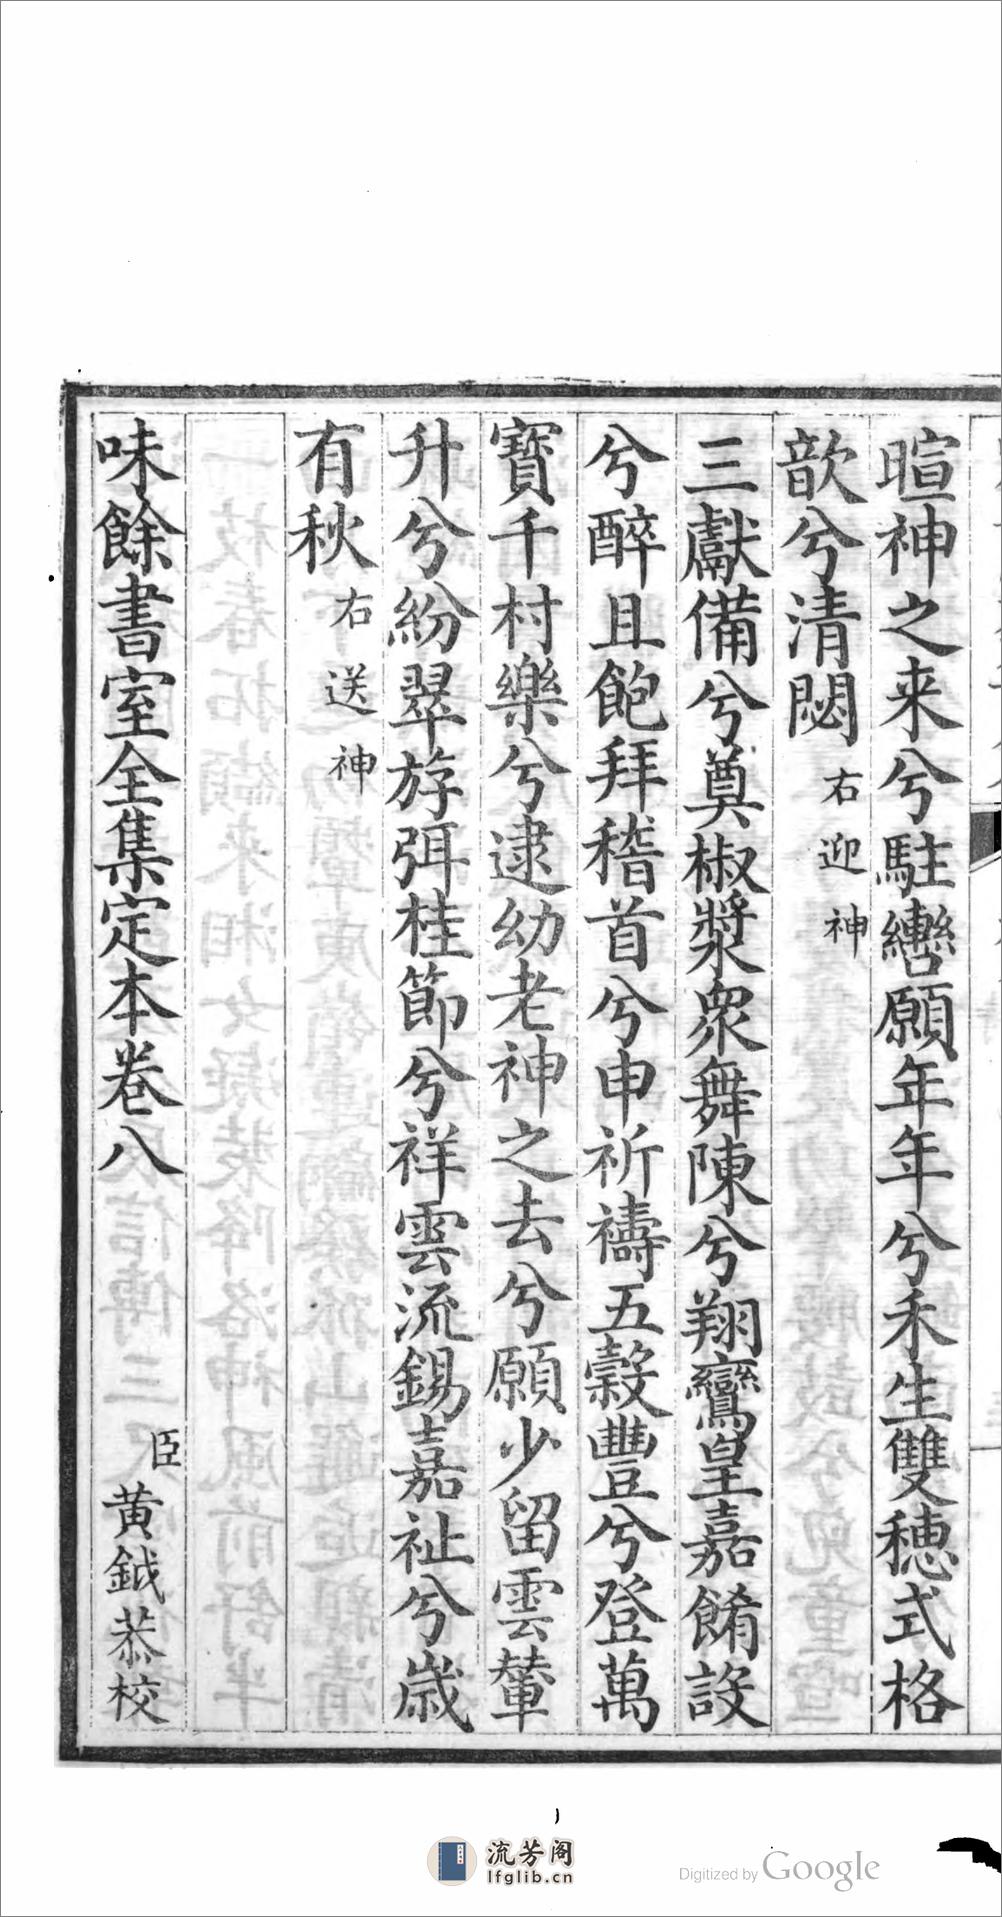 暄神之来兮駐轡願年年兮禾生雙穗式格
歆兮清閟右迎神
三獻備兮奠椒漿衆舞陳兮翔鸞皇嘉餚設
兮醉且飽拜稽首兮申祈禱五穀豐兮登萬
寶千村樂兮逮幼老神之去兮願少留雲輦
升兮紛翠斿弭桂節兮祥雲流錫嘉祉兮歲
有秋右送神
味餘書室全集定本卷八 臣黄鉞恭校
流芳阁
lfglib.cn
Digitized by Google